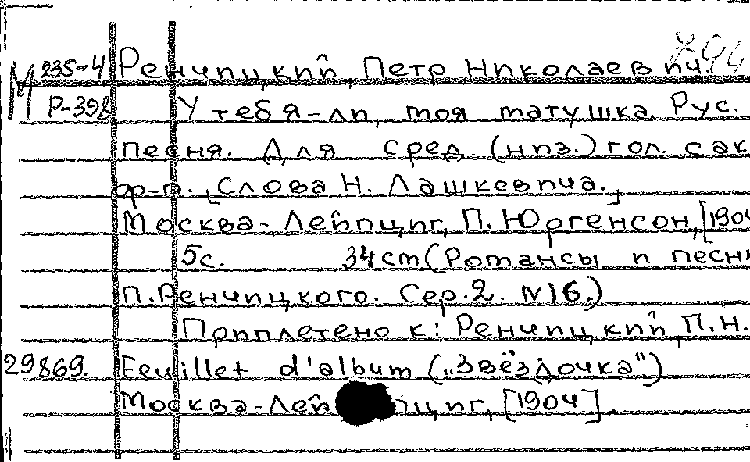 М 235-4 Ренчицкий, Петр Николаевич. 794
Р-398 У тебя-ли, моя матушка. Рус.
песня. Для сред. (низ.) гол. с ак
ф-п. [Слова Н. Лашкевича.]
Москва-Лейпциг, П. Юргенсон, [1904
5с. 34cm (Романсы и песн
П. Ренчицкого. Сер. 2. N16.)
Приплетено к: Ренчицкий, П.Н.
29869. Feuillet d'album („Звёздочка")
Москва-Лейпциг, [1904]